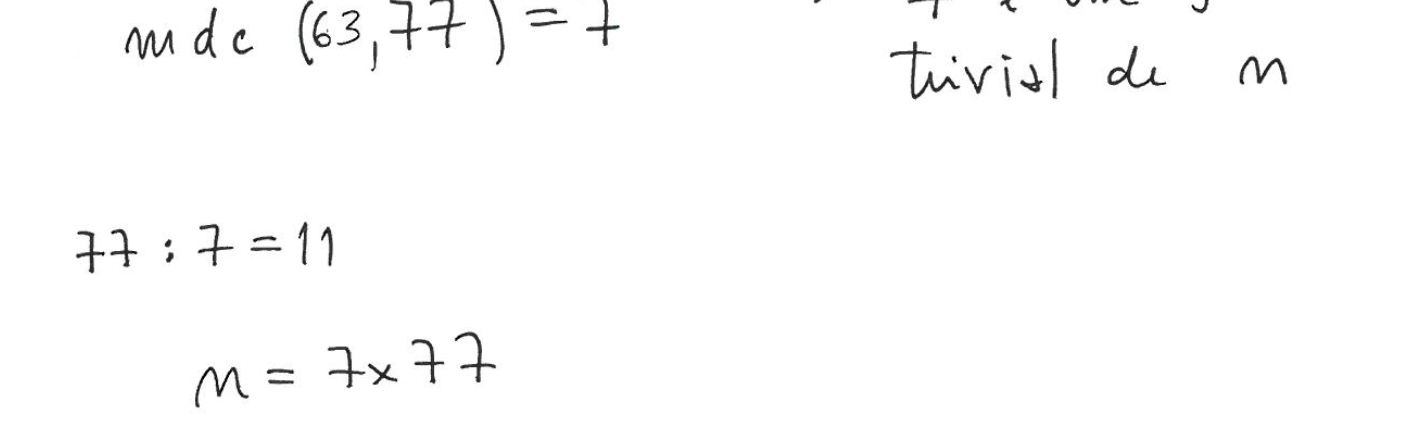 mdc (63,77) = 7
trivial de n
77 : 7 = 11
n = 7x77